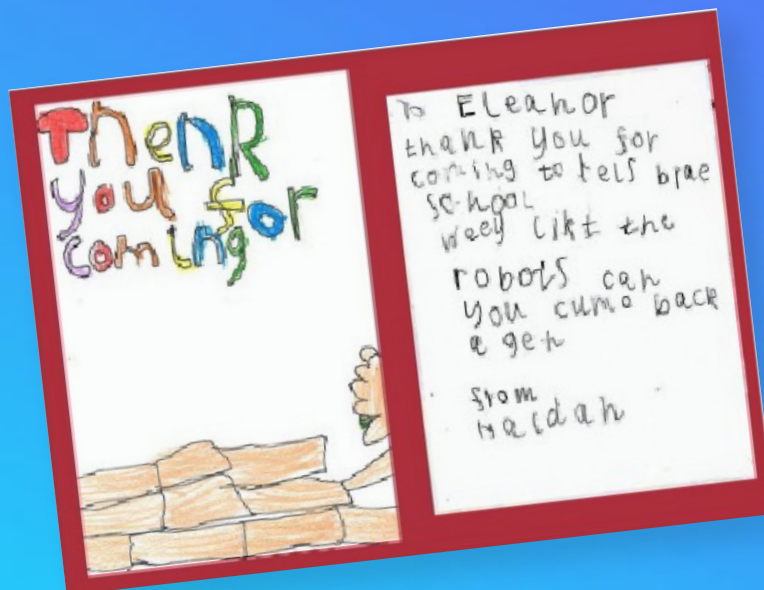 Thenk
you for
coming
To Eleanor
thank you for
coming to kels brae
school
weey likt the
robots can
you cume back
a gen
from